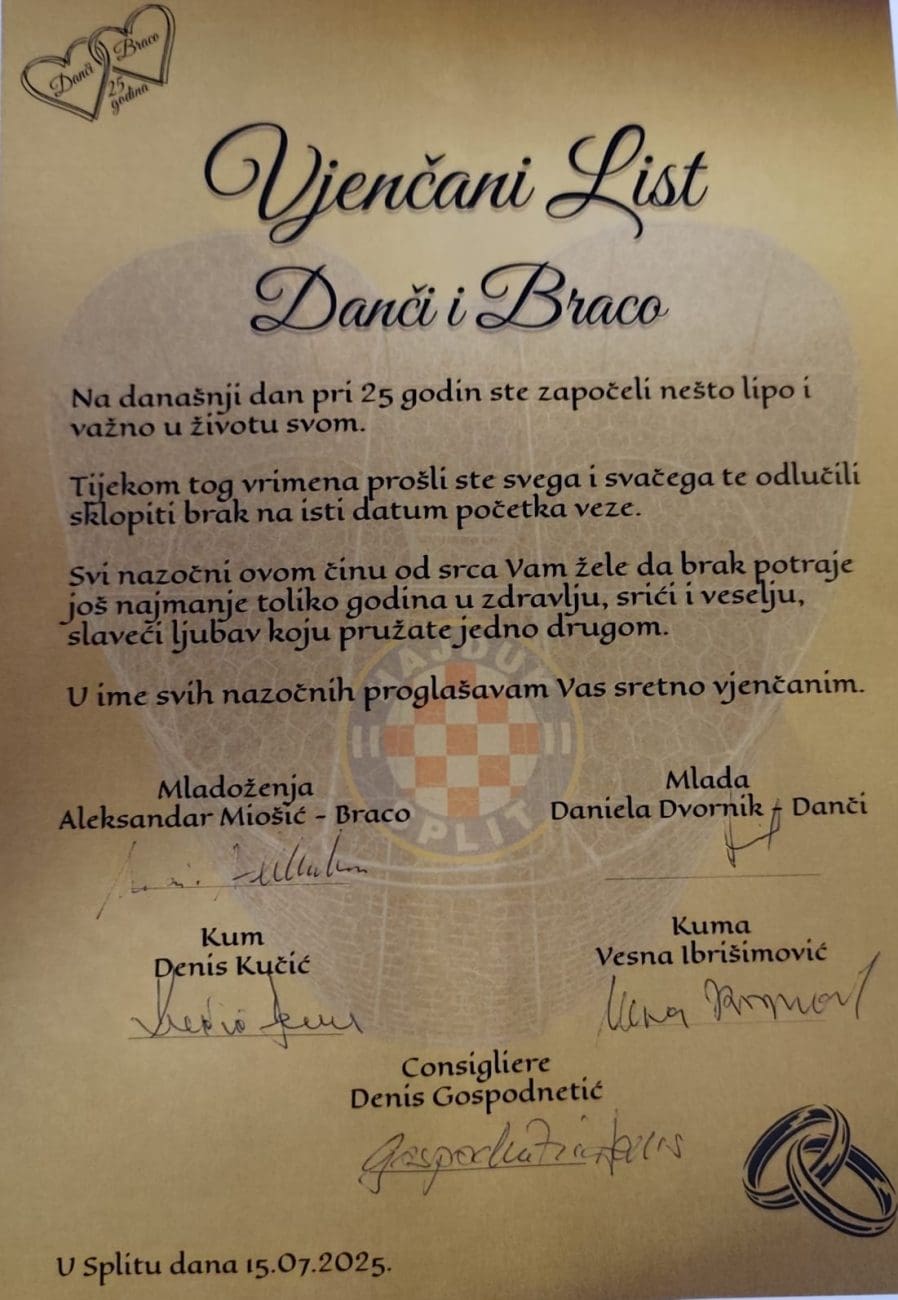 Danči Braco
25
godina
Vjenčani List
Danči i Braco
Na današnji dan pri 25 godin ste započeli nešto lipo i
važno u životu svom.
Tijekom tog vrimena prošli ste svega i svačega te odlučili
sklopiti brak na isti datum početka veze.
Svi nazočni ovom činu od srca Vam žele da brak potraje
još najmanje toliko godina u zdravlju, srići i veselju,
slaveći ljubav koju pružate jedno drugom.
HAJDUK
SPLIT
U ime svih nazočnih proglašavam Vas sretno vjenčanim.
Mladoženja
Aleksandar Miošić - Braco
Mlada
Daniela Dvornik - Danči
Kum
Denis Kučić
Kuma
Vesna Ibrišimović
Consigliere
Denis Gospodnetić
U Splitu dana 15.07.2025.